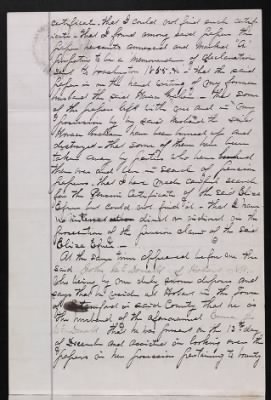 certificate that I could not find such certif-
icate - that I found among said papers the
paper herewith annexed and marked A
purporting to be a Memorandum of Declaration
sent to Washington 1855. & - that the said
paper is in the hand writing of my former
husband the said Hiram - that some
of the papers left with me and in my
possession by my said husband the said
Hiram have been burned up and
destroyed - that some of them have been
taken away by parties who have
them over and been in search of pension
papers, that I have made careful search
for the Pension Certificate of the said Eliza
but could not find it - that I have
no interest direct or indirect in the
prosecution of the pension claim of the said
Eliza
At the same time appeared before me the
said
who being by me duly sworn deposes and
says that he resides at Hobart in the town
of Stamford in said County that he is
the husband of the aforenamed
that he was present on the 13th day
of December and assisted in looking over the
papers in her possession pertaining to bounty